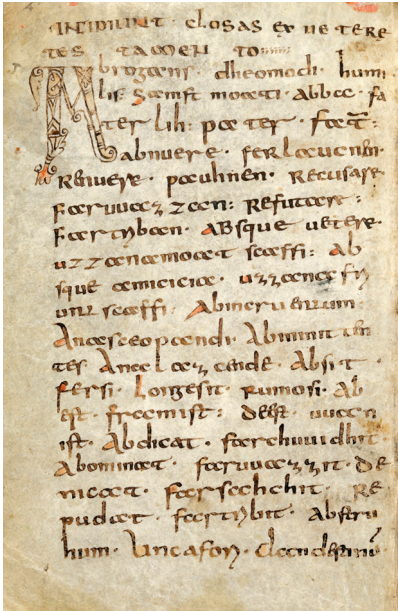 INCIPIUNT · closas ex uetere
tes tamen to
Abrogans · dheomodi · humi
lis · samft moati · abba · fa
ter lih · pater · fater :
abnuere · ferlaucnen ·
renuere · pauhnen · recusare
faruuazzan : refutare :
fartriban · absque uetere ·
uzzana moat scaffi · ab
sque amicicia · uzzana fri
unt scaffi ·
Anasceopandi ·
tes Analazende · Absit ·
fersi · longe sit rumo si · ab
est · fremist : deest · uuan
ist · Abdicat · farchuuidhit ·
Abominat · faruuazzit · de
negat · farsahchit · re
pudiat · fartribit ·